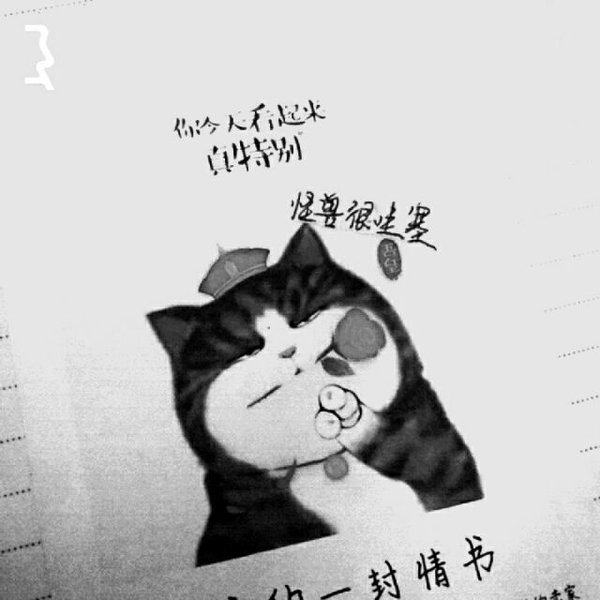 你今天看起来
真特别
怪兽很吐槽
吾皇
一封情书